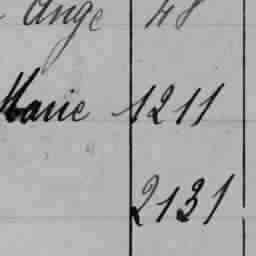 Ange 48
Marie 1211
2131